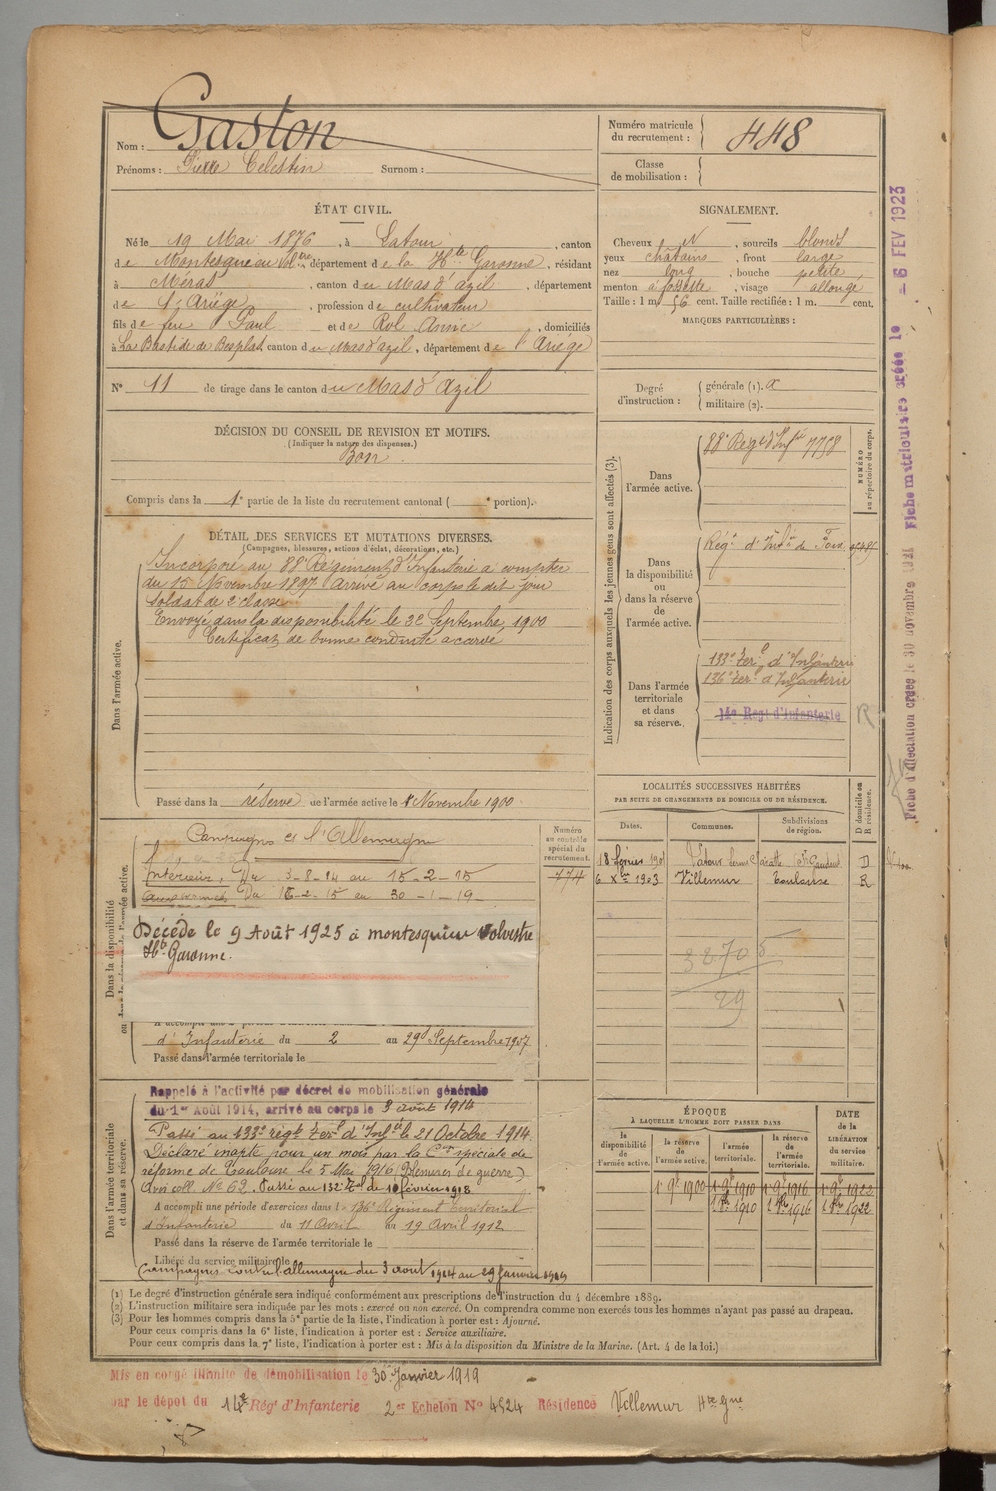 Nom : Gaston
Prénoms : Pierre Celestin Surnom :
Numéro matricule du recrutement : 448
Classe de mobilisation :
ÉTAT CIVIL.
Né le 19 Mai 1876, à Latour, canton
de Montesquieu Vol.tre, département de la Hte Garonne, résidant
à Méras, canton du Mas d'azil, département
de l'Ariège, profession de cultivateur
fils de feu Paul et de Rol Anne, domiciliés
à La Bastide de Besplas, canton du Mas d'azil, département de l'Ariège
N° 11 de tirage dans le canton du Mas d'Azil
SIGNALEMENT.
Cheveux N, sourcils blonds
yeux châtains, front large
nez long, bouche petite
menton à fossette, visage allongé
Taille : 1 m. 56 cent. Taille rectifiée : 1 m. cent.
MARQUES PARTICULIÈRES :
Degré d'instruction : générale (1). a
militaire (2).
DÉCISION DU CONSEIL DE REVISION ET MOTIFS.
(Indiquer la nature des dispenses.)
Bon
Compris dans la 1e partie de la liste du recrutement cantonal ( e portion).
DÉTAIL DES SERVICES ET MUTATIONS DIVERSES.
(Campagnes, blessures, actions d'éclat, décorations, etc.)
Dans l'armée active.
Incorporé au 88e Régiment d'Infanterie à compter
du 15 Novembre 1897 Arrivé au corps le dit jour
soldat de 2e classe
Envoyé dans la disponibilité le 22 Septembre 1900
Certificat de bonne conduite accordé
Passé dans la réserve de l'armée active le 1er Novembre 1900.
Indication des corps auxquels les jeunes gens sont affectés (3).
NUMÉRO au répertoire du corps.
Dans l'armée active. 88e Regt d'Infie 7758
Dans la disponibilité ou dans la réserve de l'armée active. Régt d'Infie de Foix
Dans l'armée territoriale et dans sa réserve. 133e Terl d'Infanterie
136e Terl d'Infanterie
14e Regt d'Infanterie
R
LOCALITÉS SUCCESSIVES HABITÉES
PAR SUITE DE CHANGEMENTS DE DOMICILE OU DE RÉSIDENCE.
Dates. Communes. Subdivisions de région. D domicile ou R résidence.
18 février 1901 Latour St Gaudens D
6 Xbre 1903 Villemur Toulouse R
38705
29
Dans la disponibilité
Campagne c/ l'Allemagne
Intérieur, Du 3-8-14 au 15-2-15
aux armées Du 16-2-15 au 30-1-19
Numéro au contrôle spécial du recrutement.
774
Décédé le 9 Août 1925 à montesquieu volvestre
Hte Garonne.
d'Infanterie du 2 au 29 Septembre 1907
Passé dans l'armée territoriale le
Dans l'armée territoriale et dans sa réserve.
Rappelé à l'activité par décret de mobilisation générale
du 1er Août 1914, arrivé au corps le 3 août 1914
Passé au 133e régt Terl d'Infie le 21 Octobre 1914
Déclaré inapte pour un mois par la Con spéciale de
réforme de Toulouse le 5 Mai 1916 (Blessures de guerre)
Avis coll. No 62. Passé au 132e Tal de 10 février 1918
A accompli une période d'exercices dans l 136e Régiment Territorial
d'Infanterie du 11 Avril au 19 Avril 1912
Passé dans la réserve de l'armée territoriale le
Libéré du service militaire le
Campagnes contre l'allemagne du 3 aout 1914 au 29 Janvier 1919
ÉPOQUE
À LAQUELLE L'HOMME DOIT PASSER DANS
la disponibilité de l'armée active. la réserve de l'armée active. l'armée territoriale. la réserve de l'armée territoriale.
DATE de la LIBÉRATION du service militaire.
1er 9bre 1900 1er 9bre 1910 1er 9bre 1916 1er 9bre 1922
1er 8bre 1910 1er 8bre 1916 1er 8bre 1922
(1) Le degré d'instruction générale sera indiqué conformément aux prescriptions de l'instruction du 4 décembre 1889.
(2) L'instruction militaire sera indiquée par les mots : exercé ou non exercé. On comprendra comme non exercés tous les hommes n'ayant pas passé au drapeau.
(3) Pour les hommes compris dans la 5e partie de la liste, l'indication à porter est : Ajourné.
Pour ceux compris dans la 6e liste, l'indication à porter est : Service auxiliaire.
Pour ceux compris dans la 7e liste, l'indication à porter est : Mis à la disposition du Ministre de la Marine. (Art. 4 de la loi.)
Mis en congé illimité de démobilisation le 30 Janvier 1919
par le dépot du 14e Régt d'Infanterie 2er Echelon No 4824 Résidence Villemur Hte Gne
Fiche d'affectation créée le 30 novembre Fiche matriculaire créée le - 6 FEV 1923